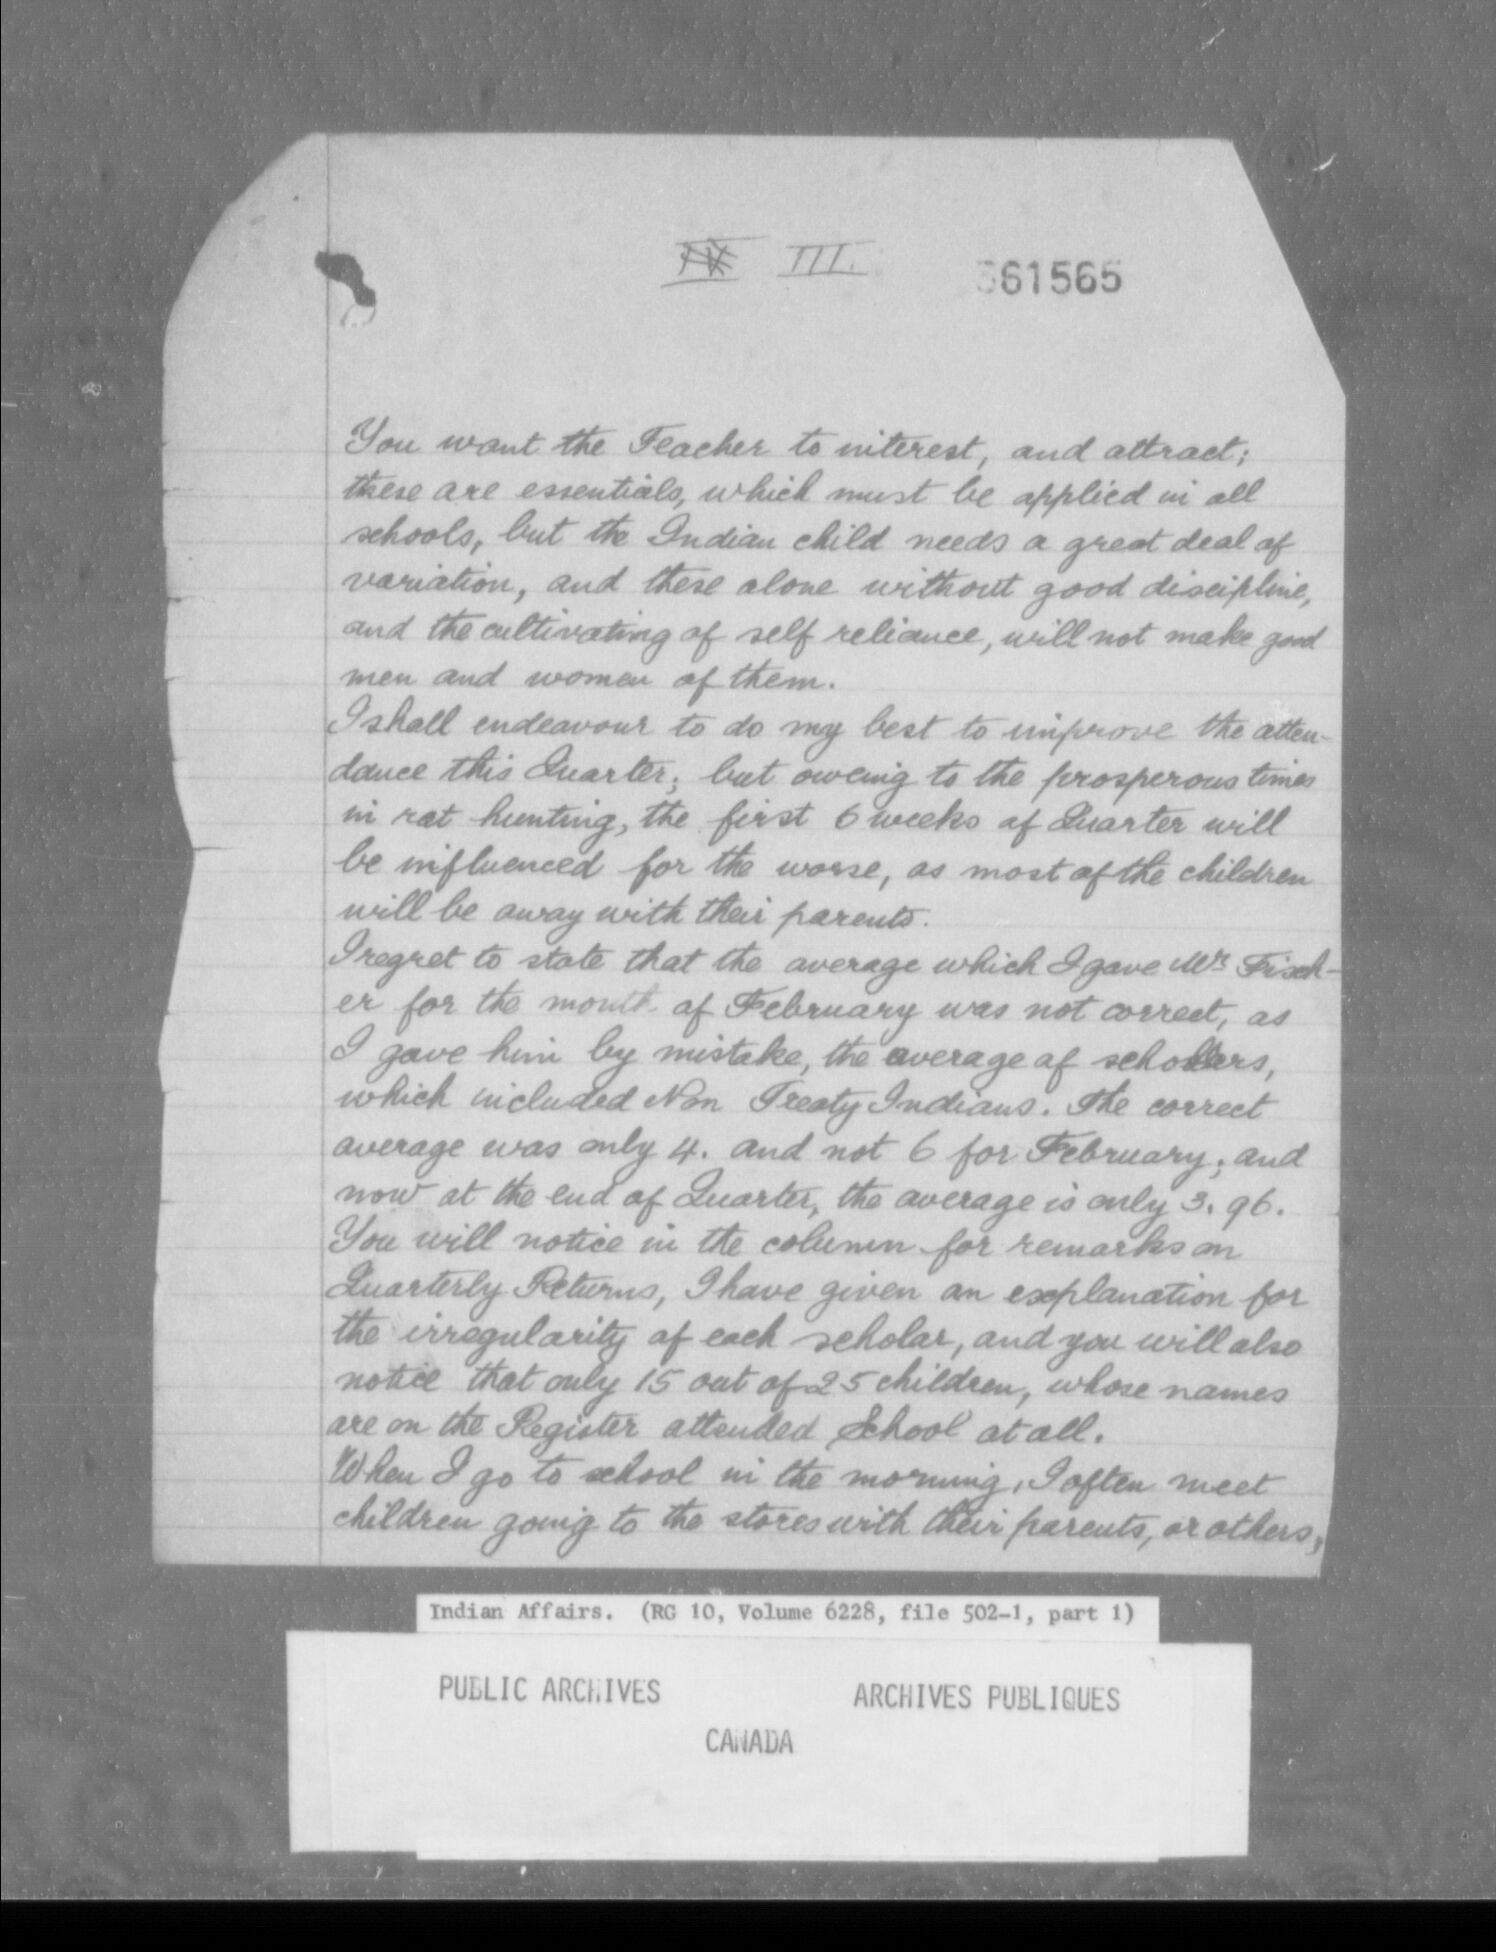 IV III.
361565
You want the Teacher to interest, and attract;
these are essentials, which must be applied in all
schools, but the Indian child needs a great deal of
variation, and these alone without good discipline,
and the cultivating of self reliance, will not make good
men and women of them.
I shall endeavour to do my best to improve the atten-
dance this Quarter; but oweing to the prosperous times
in rat hunting, the first 6 weeks of Quarter will
be influenced for the worse, as most of the children
will be away with their parents.
I regret to state that the average which I gave Mr Fisch-
er for the month of February was not correct, as
I gave him by mistake, the average of schollars,
which included Non Treaty Indians. The correct
average was only 4. and not 6 for February; and
now at the end of Quarter, the average is only 3.96.
You will notice in the column for remarks on
Quarterly Returns, I have given an explanation for
the irregularity of each scholar, and you will also
notice that only 15 out of 25 children, whose names
are on the Register attended School at all.
When I go to school in the morning, I often meet
children going to the stores with their parents, or others,
Indian Affairs. (RG 10, Volume 6228, file 502-1, part 1)
PUBLIC ARCHIVES ARCHIVES PUBLIQUES
CANADA